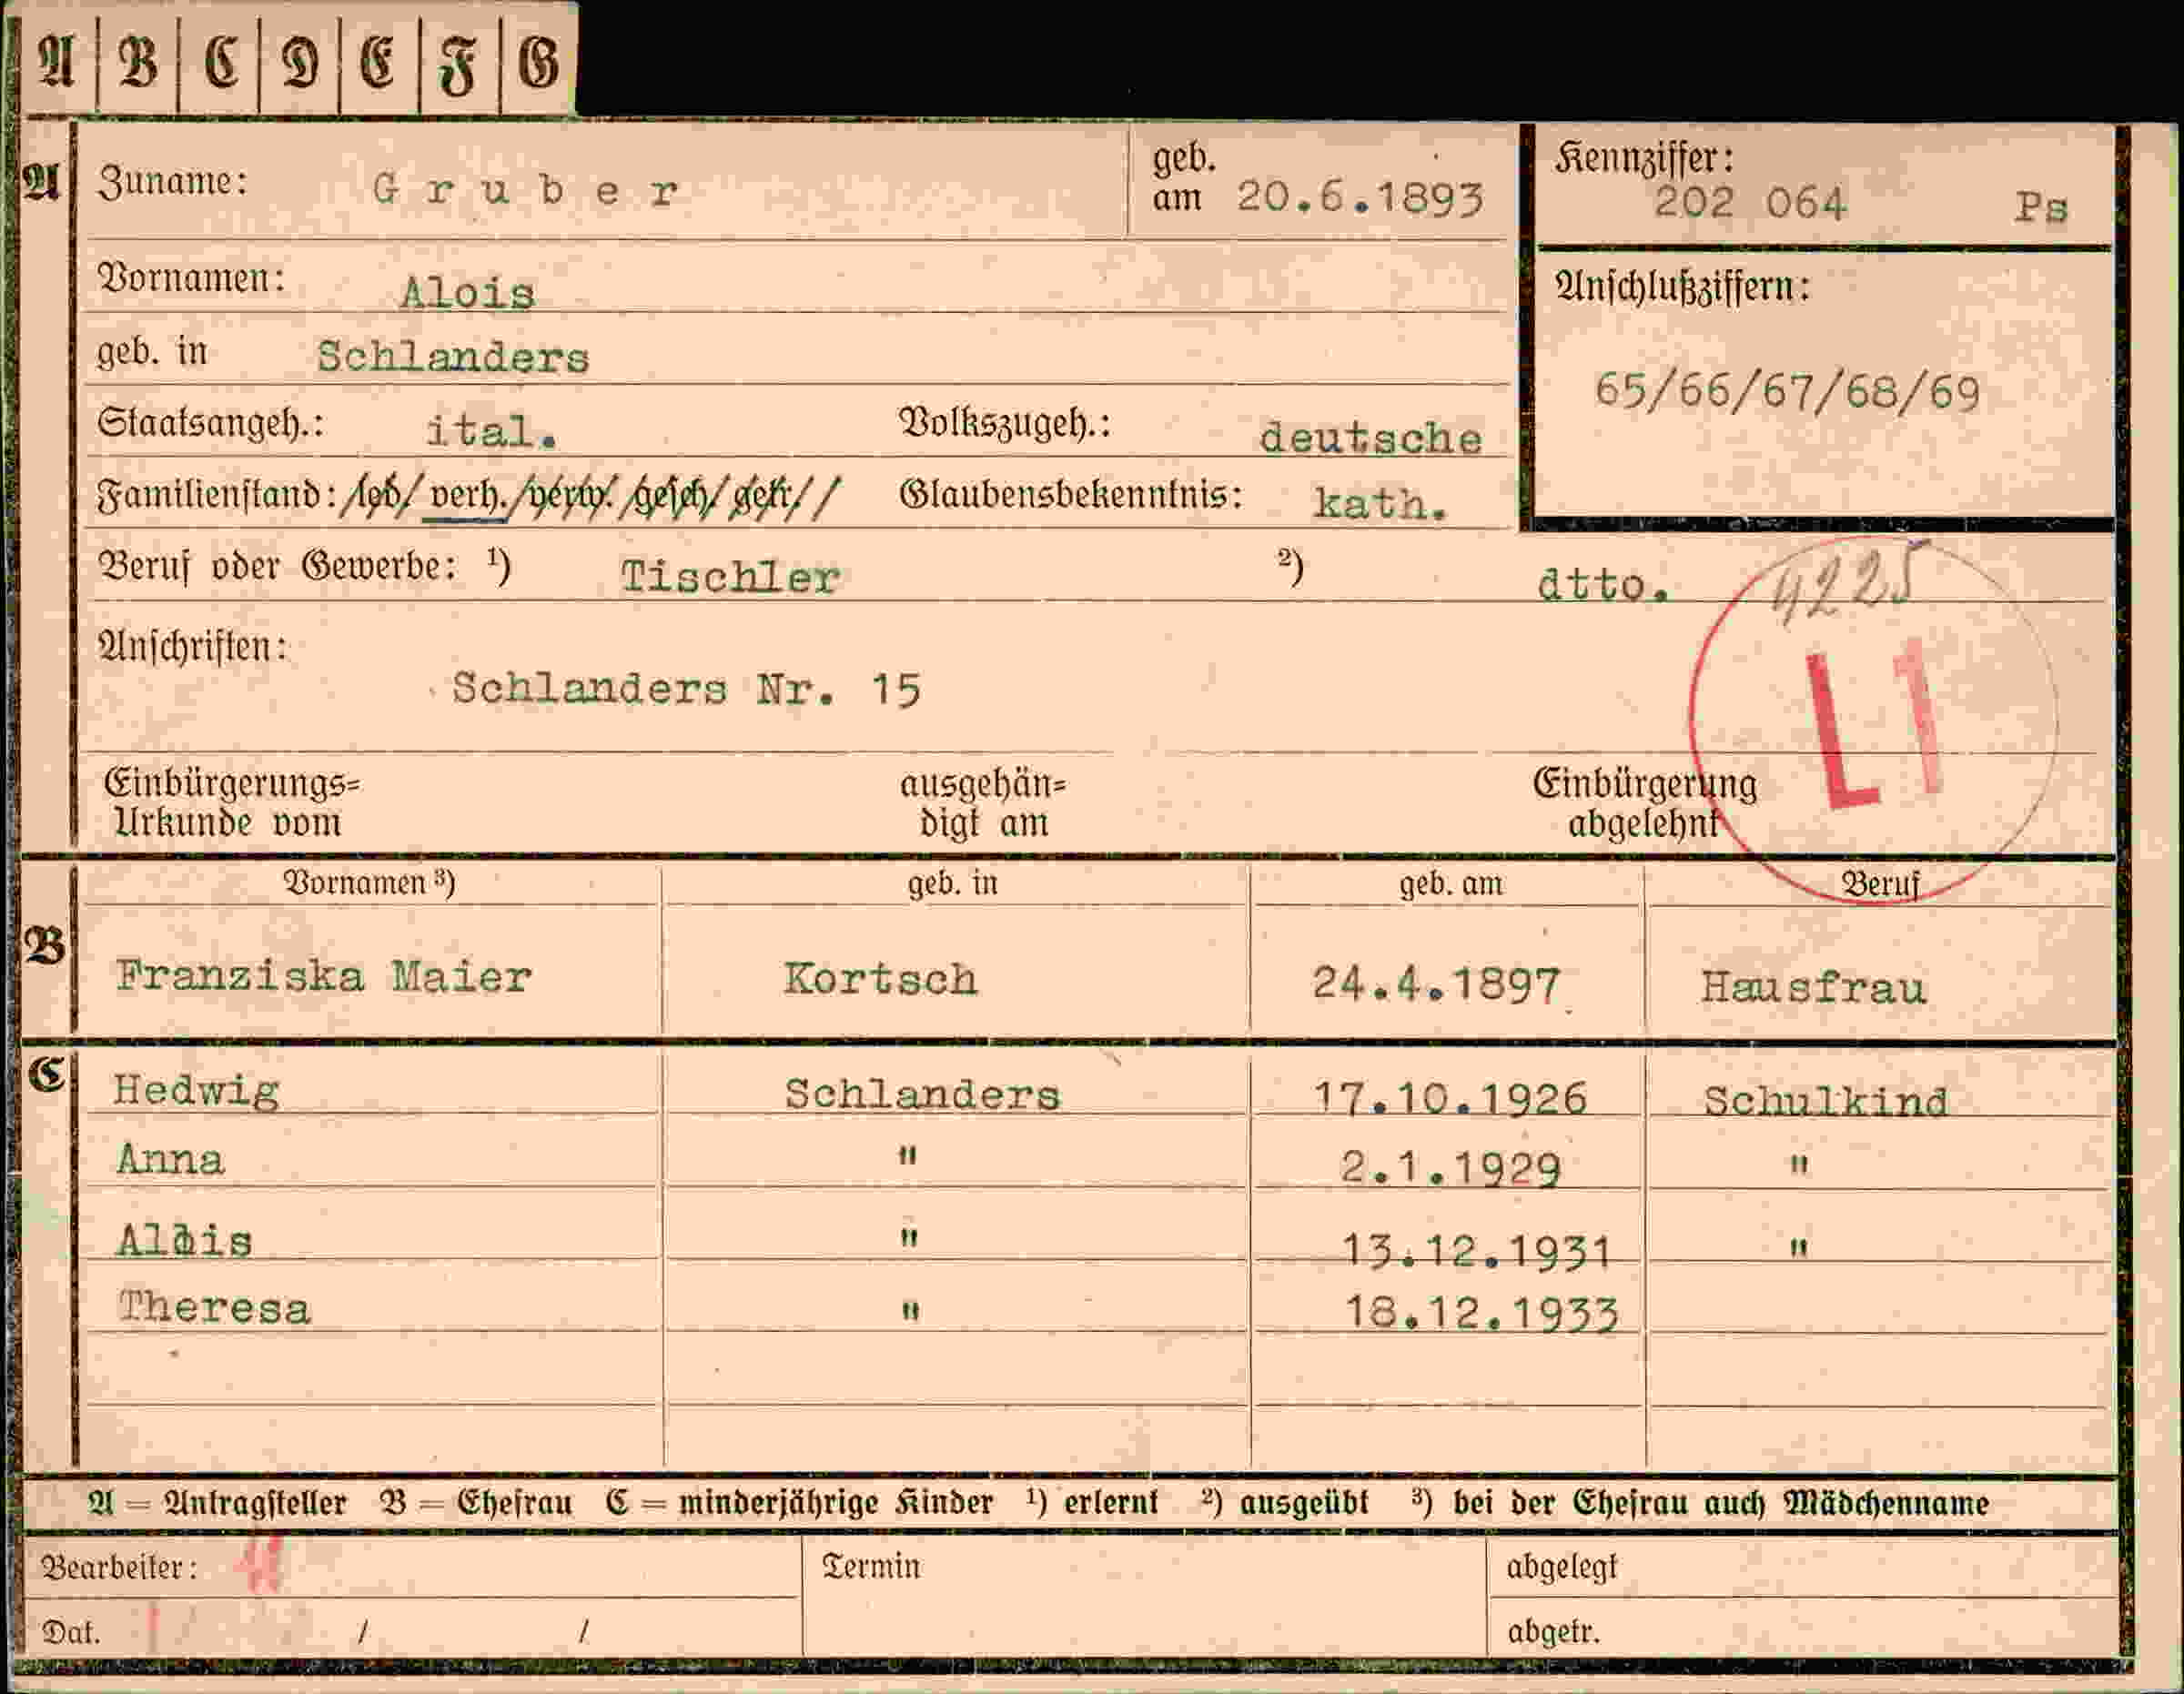 A B C D E F G
A Zuname: Gruber geb. am 20.6.1893
Kennziffer: 202 064 Ps
Vornamen: Alois
geb. in Schlanders
Anschlußziffern:
65/66/67/68/69
Staatsangeh.: ital. Volkszugeh.: deutsche
Familienstand: /led/ verh./verw. /gesch/ getr// Glaubensbekenntnis: kath.
Beruf oder Gewerbe: ¹) Tischler ²) dtto.
4225
L1
Anschriften:
Schlanders Nr. 15
Einbürgerungs= ausgehän= Einbürgerung
Urkunde vom digt am abgelehnt
Vornamen ³) geb. in geb. am Beruf
B Franziska Maier Kortsch 24.4.1897 Hausfrau
C Hedwig Schlanders 17.10.1926 Schulkind
Anna " 2.1.1929 "
Alois " 13.12.1931 "
Theresa " 18.12.1933
A = Antragsteller B = Ehefrau C = minderjährige Kinder ¹) erlernt ²) ausgeübt ³) bei der Ehefrau auch Mädchenname
Bearbeiter: Termin abgelegt
Dat. / / abgetr.